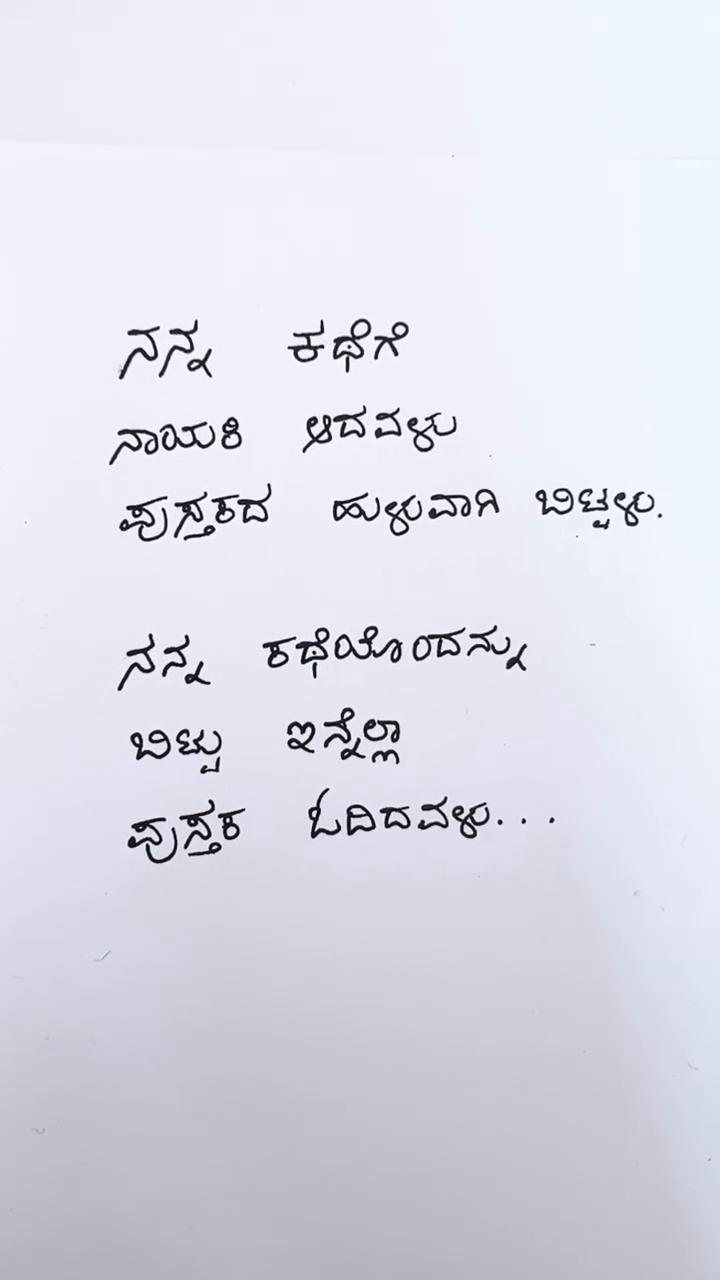 ನನ್ನ ಕಥೆಗೆ
ನಾಯಕಿ ಆದವಳು
ಪುಸ್ತಕದ ಹುಳುವಾಗಿ ಬಿಟ್ಟಳು.
ನನ್ನ ಕಥೆಯೊಂದನ್ನು
ಬಿಟ್ಟು ಇನ್ನೆಲ್ಲಾ
ಪುಸ್ತಕ ಓದಿದವಳು...